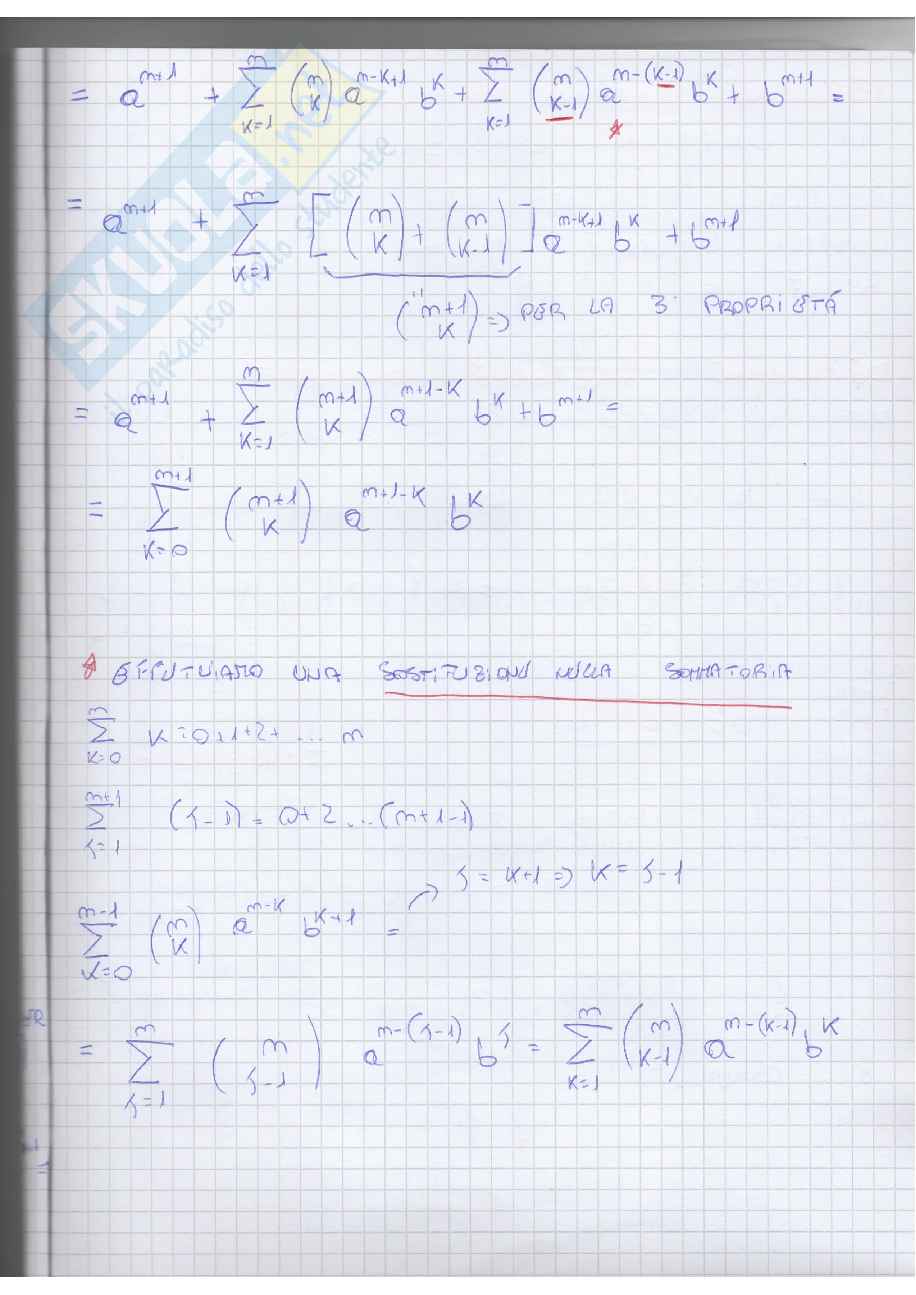 = a^{m+1} + \sum_{K=1}^{m} \binom{m}{K} a^{m-K+1} b^{K} + \sum_{K=1}^{m} \binom{m}{K-1} a^{m-(K-1)} b^{K} + b^{m+1} =
*
= a^{m+1} + \sum_{K=1}^{m} [ \binom{m}{K} + \binom{m}{K-1} ] a^{m-K+1} b^{K} + b^{m+1}
\binom{m+1}{K} => PER LA 3ª PROPRIETÁ
= a^{m+1} + \sum_{K=1}^{m} \binom{m+1}{K} a^{m+1-K} b^{K} + b^{m+1} =
= \sum_{K=0}^{m+1} \binom{m+1}{K} a^{m+1-K} b^{K}
* EFFETTUIAMO UNA SOSTITUZIONE NELLA SOMMATORIA
\sum_{K=0}^{m} K = 0+1+2+ ... m
\sum_{j=1}^{m+1} (j-1) = 0+2 ... (m+1-1)
j = K+1 => K = j-1
\sum_{K=0}^{m-1} \binom{m}{K} a^{m-K} b^{K+1} =
= \sum_{j=1}^{m} \binom{m}{j-1} a^{m-(j-1)} b^{j} = \sum_{K=1}^{m} \binom{m}{K-1} a^{m-(K-1)} b^{K}
SKUOLA.net
il paradiso dello studente